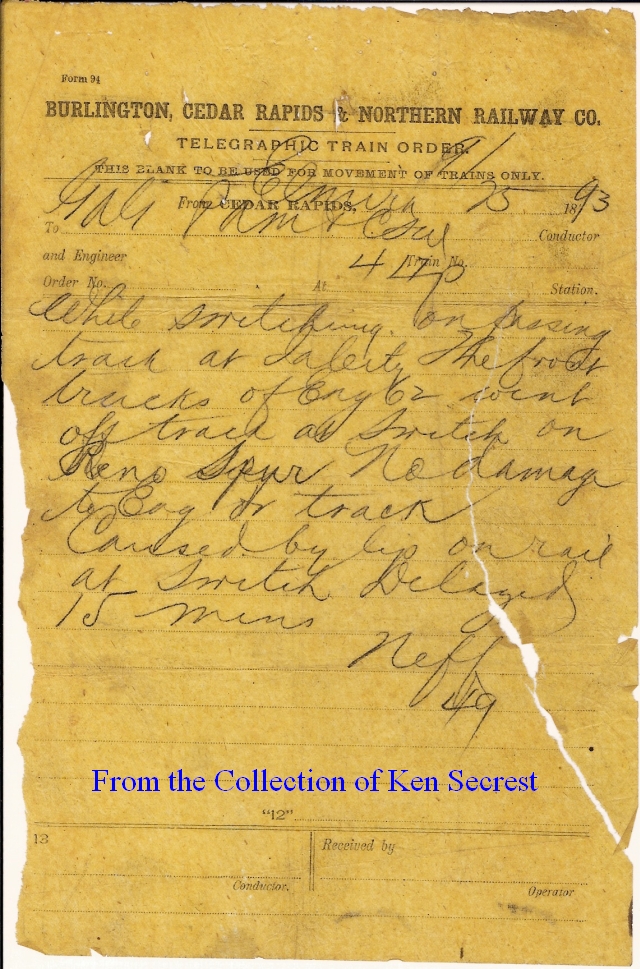 Form 94
BURLINGTON, CEDAR RAPIDS & NORTHERN RAILWAY CO.
TELEGRAPHIC TRAIN ORDER.
THIS BLANK TO BE USED FOR MOVEMENT OF TRAINS ONLY.
Elmira 9/25
From CEDAR RAPIDS, 1893
To Conductor
and Engineer Train No.
Order No. At Station.
While switching on passing
track at Salcity The front
trucks of Eng 62 went
off track at switch on
Reno Spur No damage
to Eng or track
Caused by lip on rail
at switch Delayed
15 mins
Neff
49
From the Collection of Ken Secrest
"12"
13
Received by
Conductor.
Operator